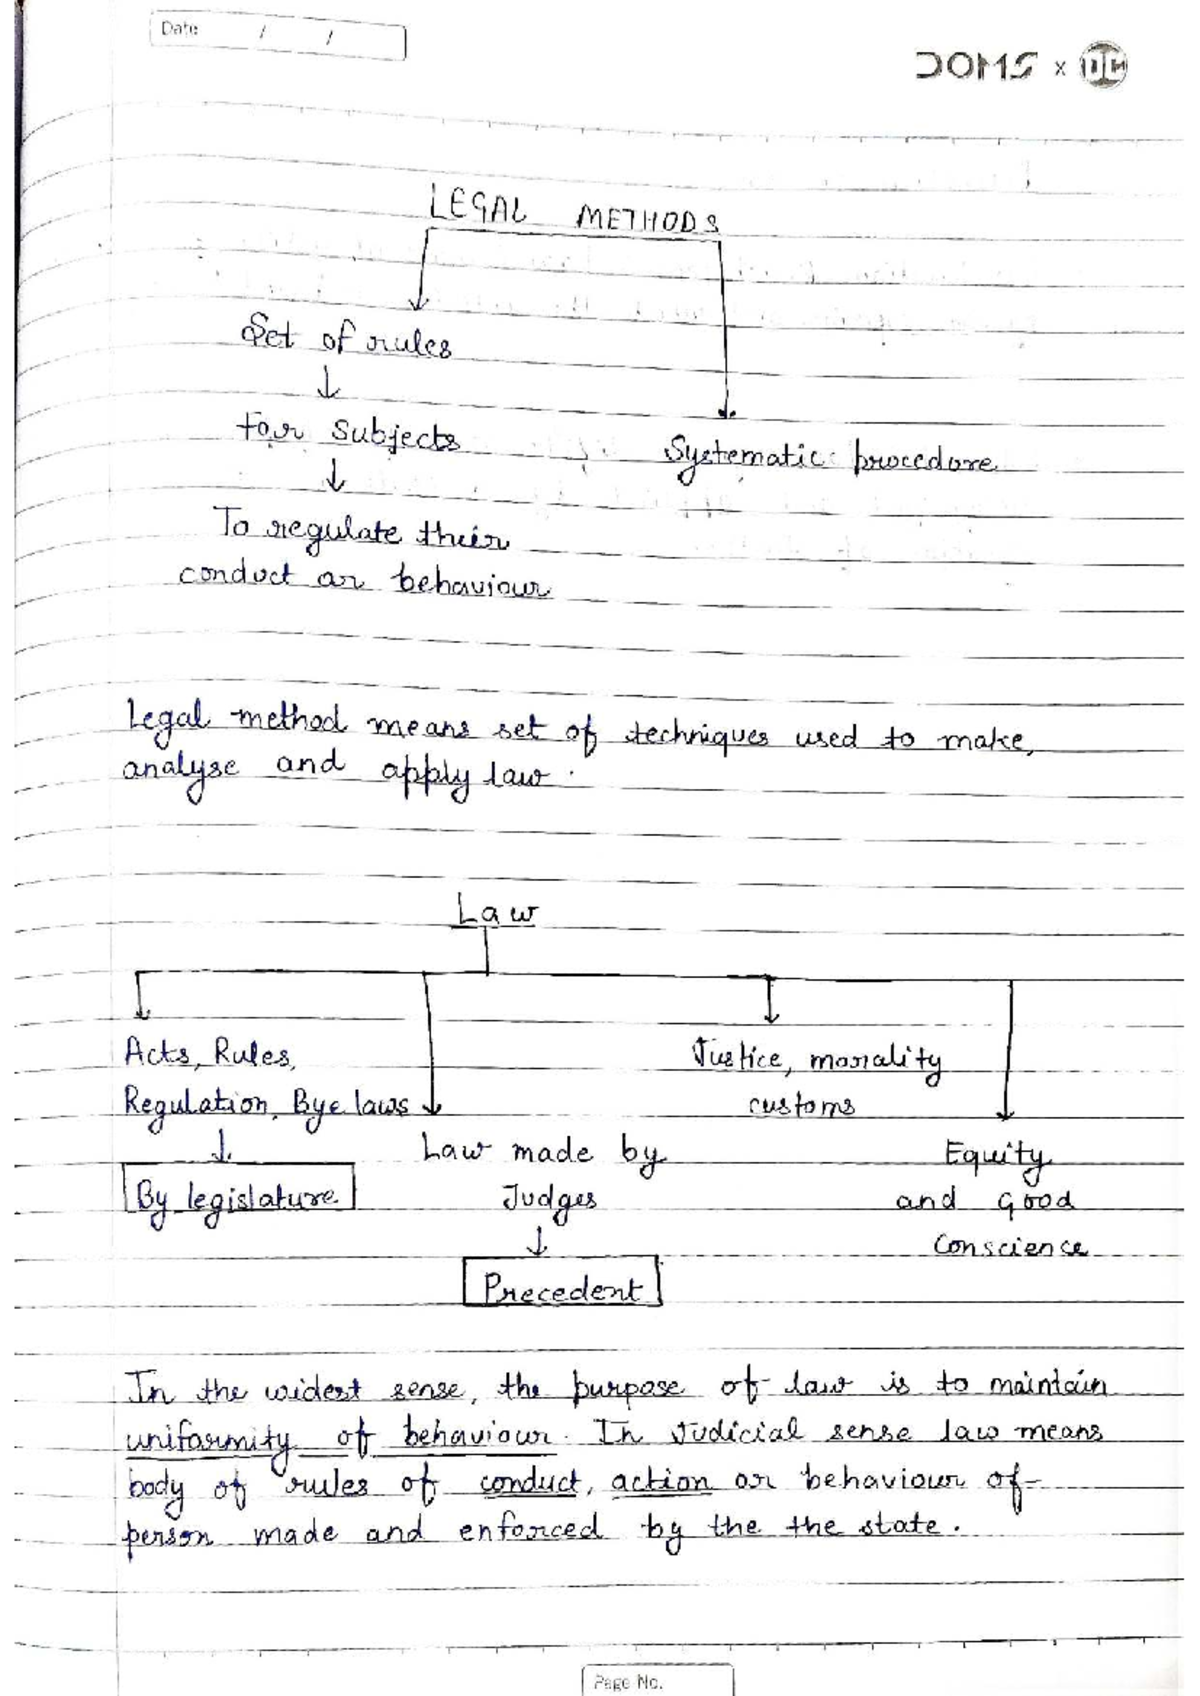 Date / /
DOMS x DC
LEGAL METHODS
Set of rules
For subjects
Systematic procedure
To regulate their
conduct or behaviour
Legal method means set of techniques used to make,
analyse and apply law.
Law
Acts, Rules,
Regulation, Bye laws
By legislature
Law made by
Judges
Precedent
Justice, morality
customs
Equity
and good
conscience
In the widest sense, the purpose of law is to maintain
uniformity of behaviour. In Judicial sense law means
body of rules of conduct, action or behaviour of
person made and enforced by the the state.
Page No.